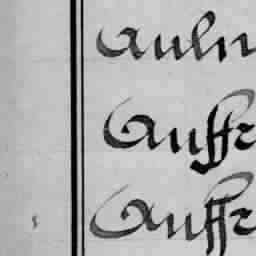 Auln
Auffr
Auffr